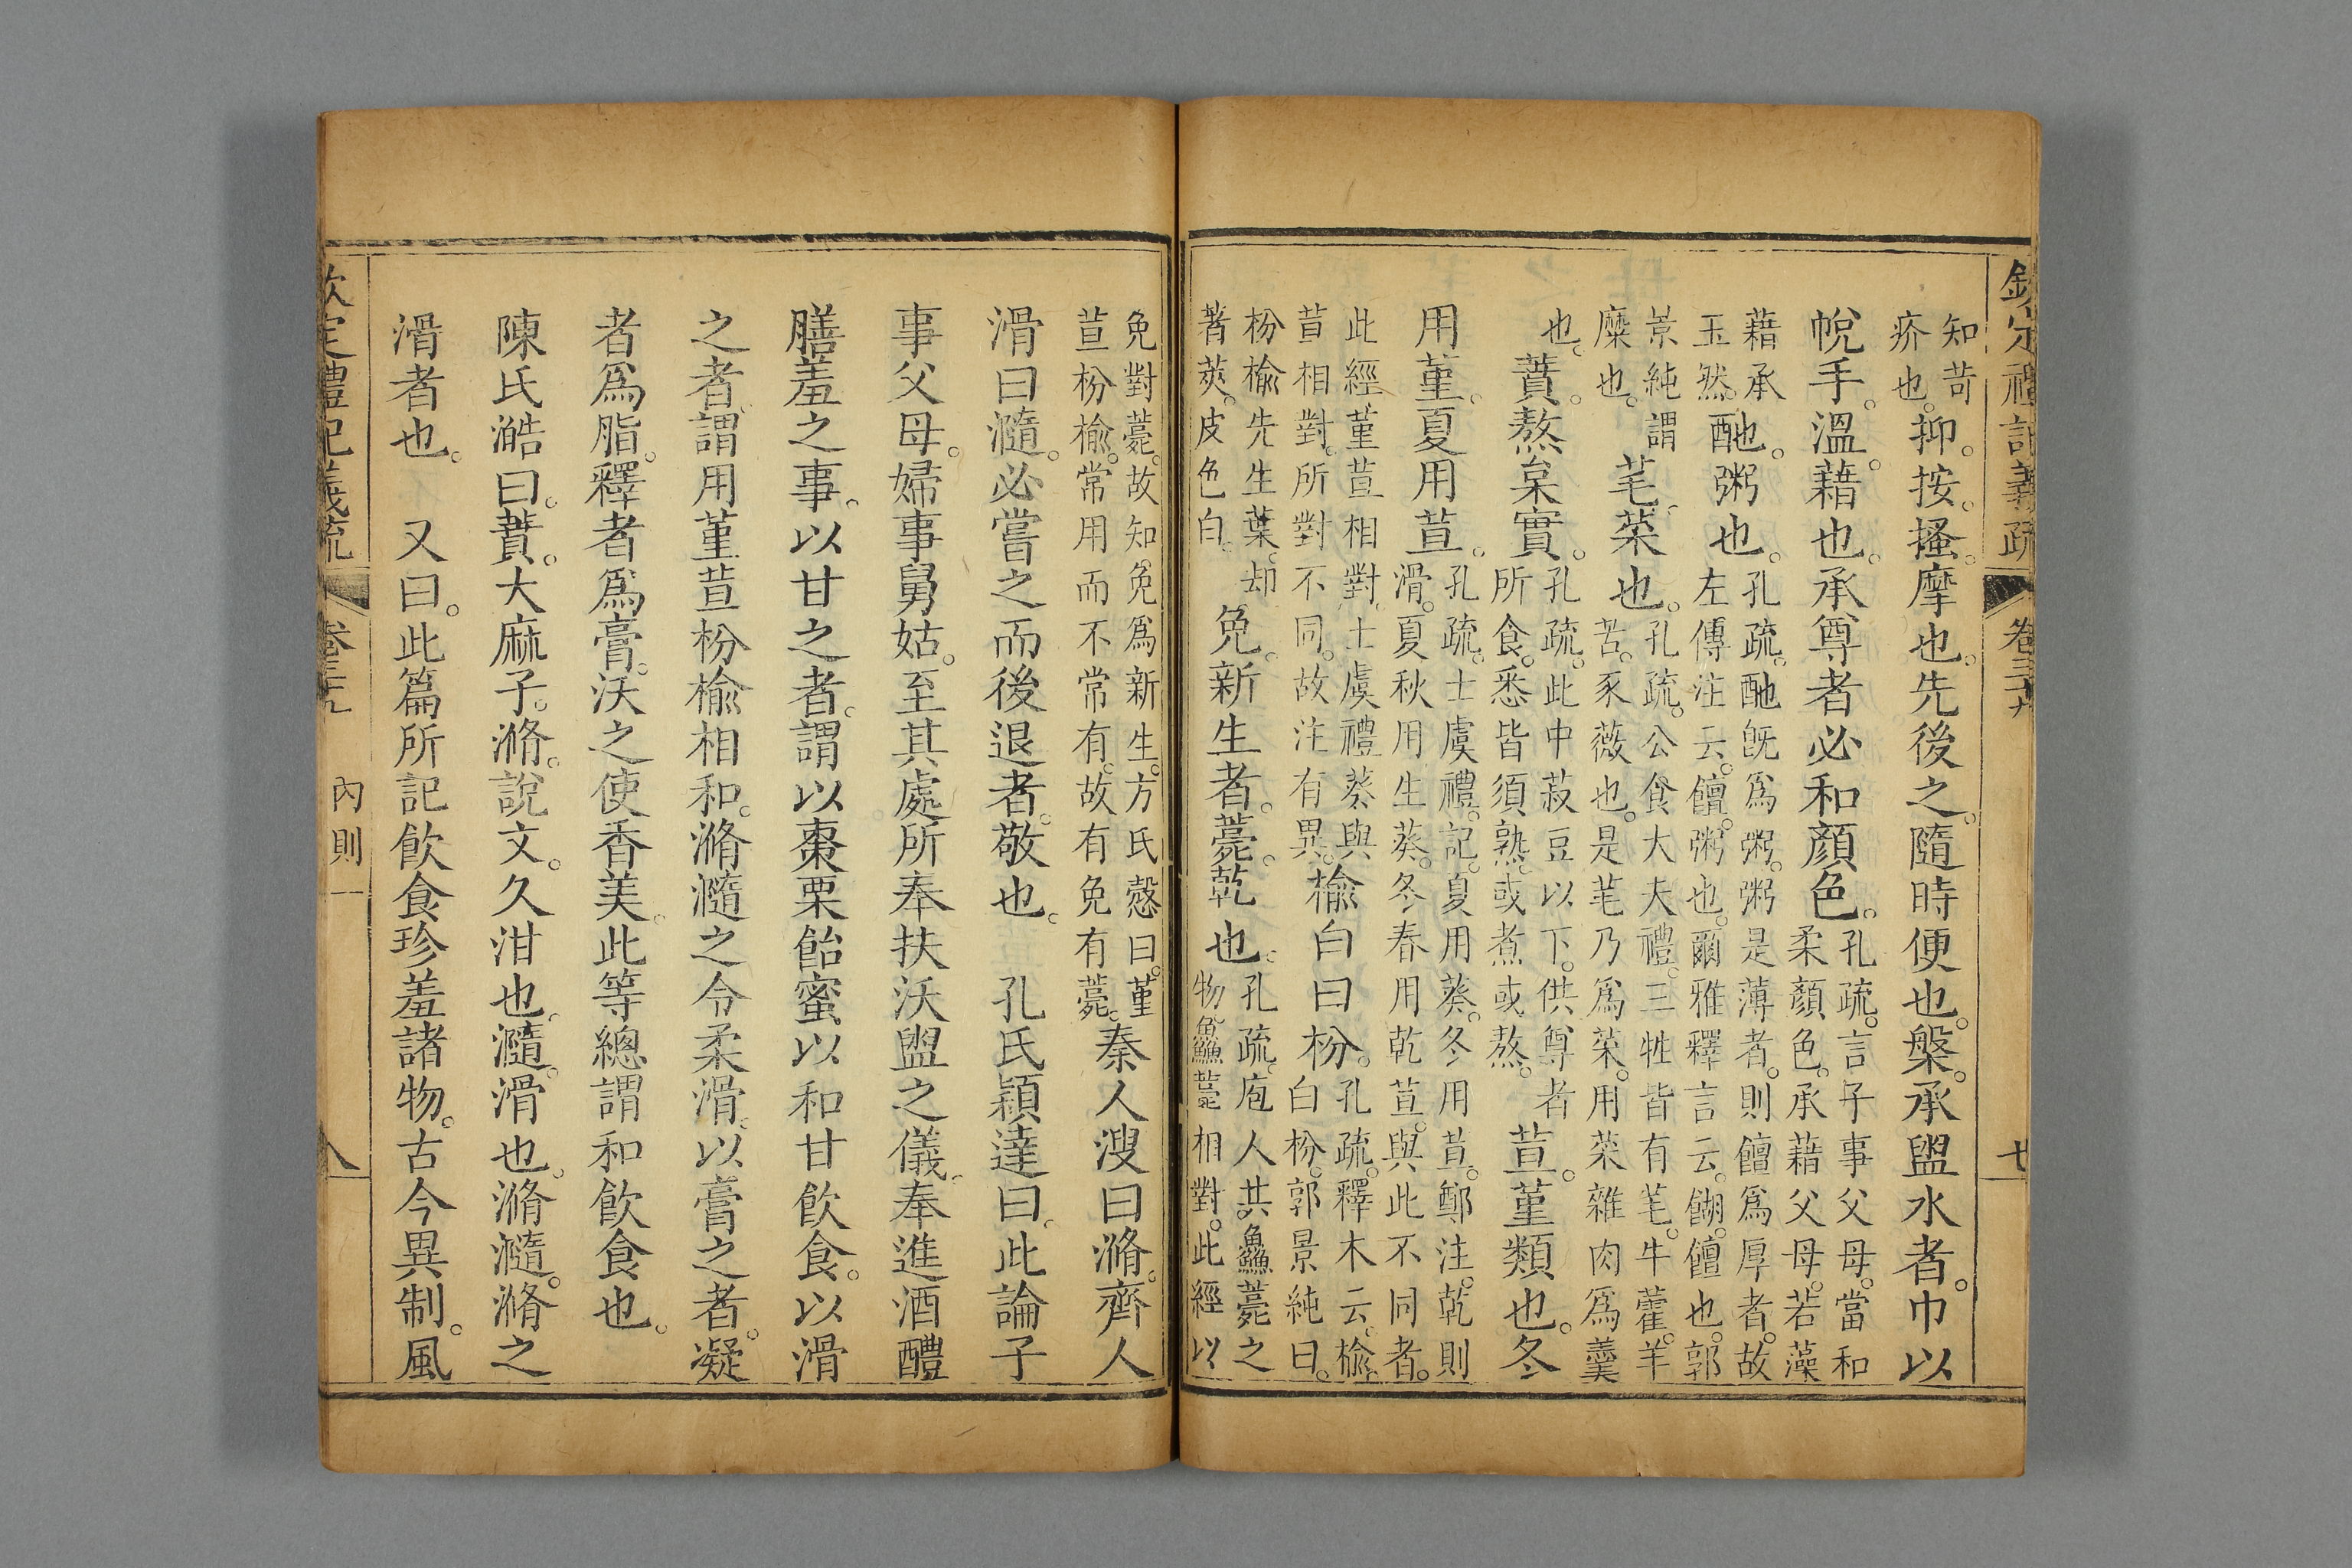 欽定禮記義疏 卷三十九 七
知苛
疥也。抑。按。搔。摩也。先後之。隨時便也。槃。承盥水者。巾以
帨手。溫。藉也。承尊者必和顏色。孔疏。言子事父母。當和
柔顏色。承藉父母。若藻
藉承
玉然。酏。粥也。孔疏。酏既爲粥。粥是薄者。則饘爲厚者。故
左傳注云。饘。粥也。爾雅釋言云。餬。饘也。郭
景純謂
糜也。芼。菜也。孔疏。公食大夫禮。三牲皆有芼。牛藿。羊
苦。豕薇也。是芼乃爲菜。用菜雜肉爲羹
也。蕡。熬枲實。孔疏。此中菽豆以下。供尊者
所食。悉皆須熟。或煮或熬。荁。堇類也。冬
用堇。夏用荁。孔疏。士虞禮。記。夏用葵。冬用荁。鄭注。乾則
滑。夏秋用生葵。冬春用乾荁。與此不同者。
此經堇荁相對。士虞禮葵與
荁相對。所對不同。故注有異。榆白曰枌。孔疏。釋木云。榆。
白枌。郭景純曰。
枌榆先生葉。却
著莢。皮色白。免。新生者。薧。乾也。孔疏。庖人共鱻薧之
物。鱻薧相對。此經以
免對薧。故知免爲新生。方氏慤曰。堇
荁枌榆。常用而不常有。故有免有薧。秦人溲曰滫。齊人
滑曰瀡。必嘗之而後退者。敬也。 孔氏穎達曰。此論子
事父母。婦事舅姑。至其處所奉扶沃盥之儀。奉進酒醴
膳羞之事。以甘之者。謂以棗栗飴蜜以和甘飲食。以滑
之者。謂用堇荁枌榆相和。滫瀡之令柔滑。以膏之者。凝
者爲脂。釋者爲膏。沃之使香美。此等總謂和飲食也。
陳氏澔曰。蕡。大麻子。滫。說文。久泔也。瀡。滑也。滫瀡。滫之
滑者也。 又曰。此篇所記飲食珍羞諸物。古今異制。風
欽定禮記義疏 卷三十九 內則 八